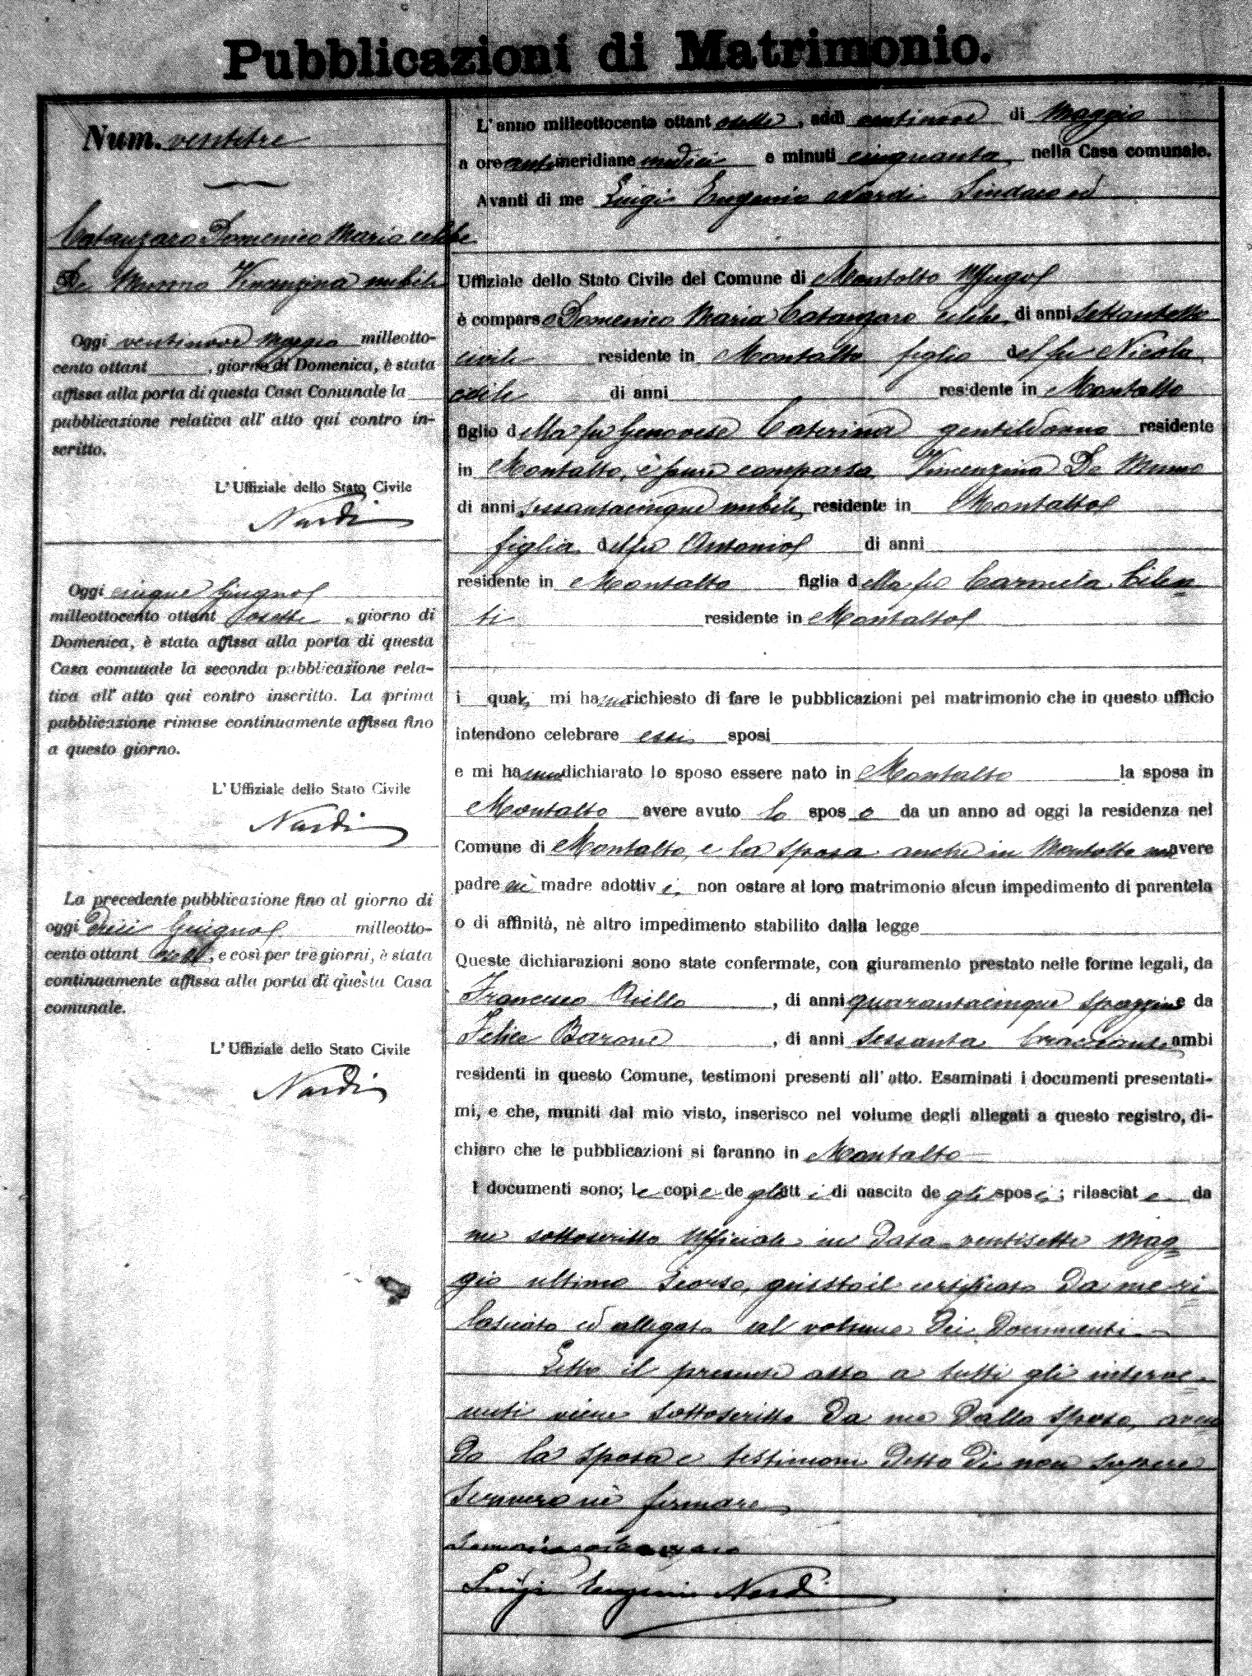 Pubblicazioni di Matrimonio.
Num. ventitre
Catanzaro Domenico Maria celibe
De Munno Vincenzina nubile
Oggi ventinove Maggio milleotto-
cento ottant , giorno di Domenica, è stata
affissa alla porta di questa Casa Comunale la
pubblicazione relativa all' atto qui contro in-
scritto.
L' Uffiziale dello Stato Civile
Nardi
Oggi cinque Giugno
milleottocento ottant osette , giorno di
Domenica, è stata affissa alla porta di questa
Casa comunale la seconda pubblicazione rela-
tiva all' atto qui contro inscritto. La prima
pubblicazione rimase continuamente affissa fino
a questo giorno.
L' Uffiziale dello Stato Civile
Nardi
La precedente pubblicazione fino al giorno di
oggi dieci Giugno milleotto-
cento ottant osette, e così per tre giorni, è stata
continuamente affissa alla porta di questa Casa
comunale.
L' Uffiziale dello Stato Civile
Nardi
L' anno milleottocento ottant osette , addì ventinove di Maggio
a ore antimeridiane undici e minuti cinquanta, nella Casa comunale.
Avanti di me Luigi Eugenio Nardi Sindaco ed
Uffiziale dello Stato Civile del Comune di Montalto Uffugo
è comparso Domenico Maria Catanzaro celibe, di anni settantotto
civile residente in Montalto figlio del fu Nicola
civile di anni residente in Montalto
figlio della fu Genovese Caterina gentildonna residente
in Montalto, è pure comparsa Vincenzina De Munno
di anni sessantacinque nubile, residente in Montalto
figlia del fu Antonio di anni
residente in Montalto figlia della fu Carmela Cilen
ti residente in Montalto
i quali mi hanno richiesto di fare le pubblicazioni pel matrimonio che in questo ufficio
intendono celebrare essi sposi
e mi hanno dichiarato lo sposo essere nato in Montalto la sposa in
Montalto avere avuto lo sposo da un anno ad oggi la residenza nel
Comune di Montalto, e la sposa anche in Montalto non avere
padre nè madre adottivi, non ostare al loro matrimonio alcun impedimento di parentela
o di affinità, nè altro impedimento stabilito dalla legge
Queste dichiarazioni sono state confermate, con giuramento prestato nelle forme legali, da
Francesco Aiello , di anni quarantacinque spazzino e da
Felice Barone , di anni sessanta bracciante ambi
residenti in questo Comune, testimoni presenti all' atto. Esaminati i documenti presentati-
mi, e che, muniti dal mio visto, inserisco nel volume degli allegati a questo registro, di-
chiaro che le pubblicazioni si faranno in Montalto
I documenti sono; le copie de gli atti di nascita de gli sposi; rilasciate da
me sottoscritto Ufficiale in data ventisette Mag=
gio ultimo scorso, giusto il certificato da me ri
lasciato ed allegato al volume dei documenti.
Letto il presente atto a tutti gli interve=
nuti viene sottoscritto da me dallo sposo, aven
do la sposa e testimoni detto di non sapere
scrivere nè firmare
Luigi Eugenio Nardi